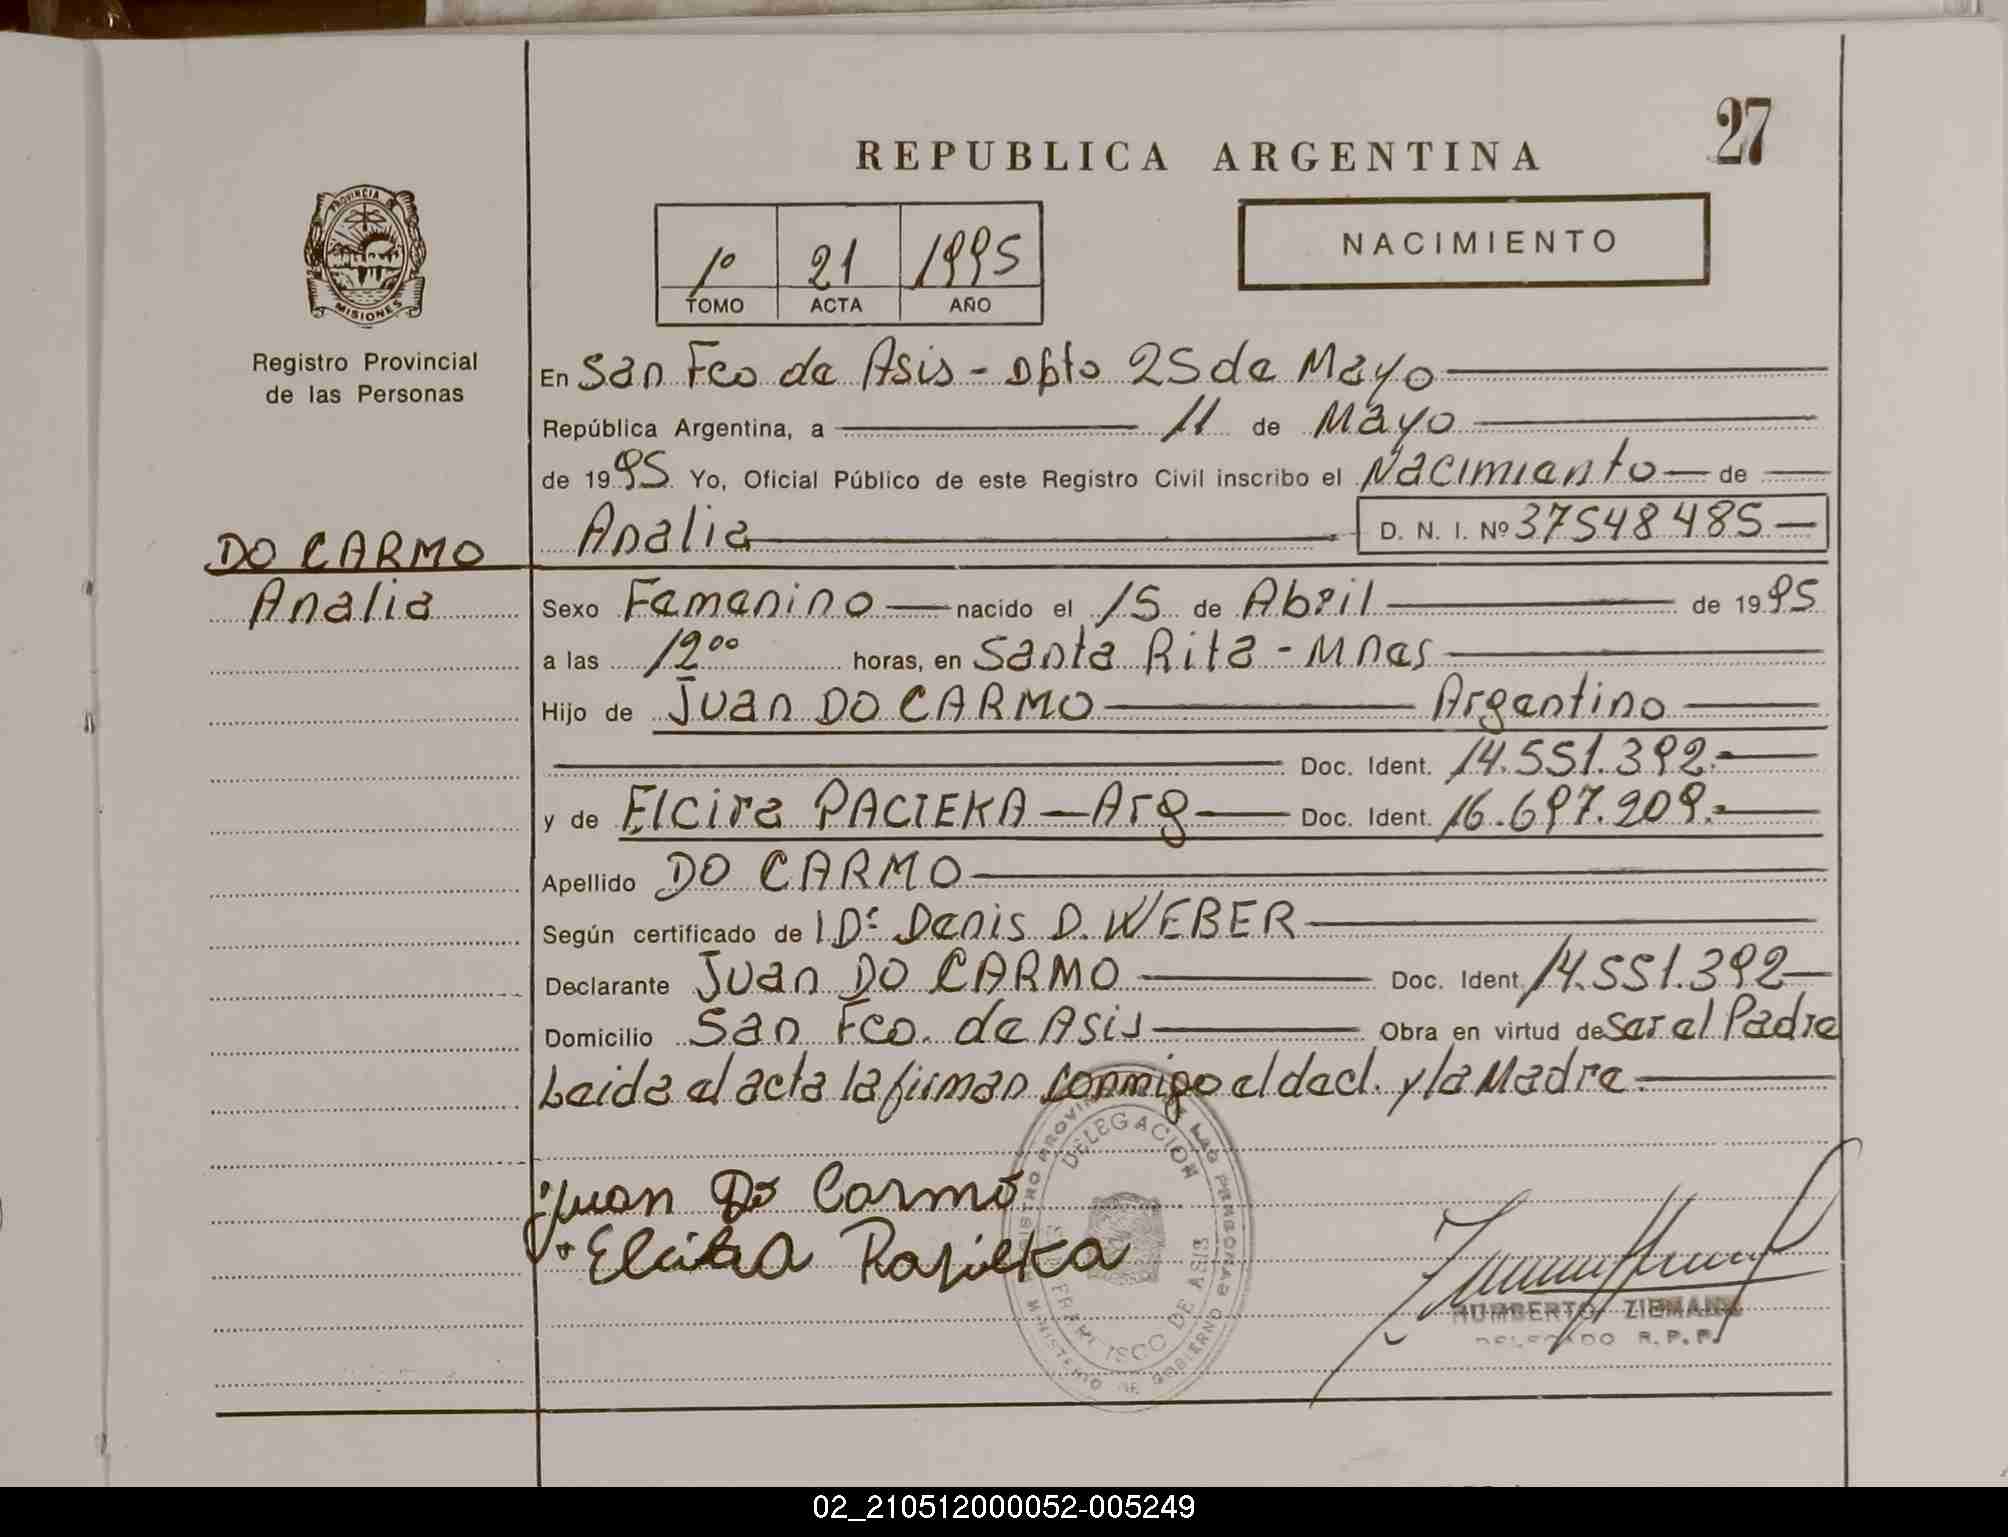 27
REPUBLICA ARGENTINA
NACIMIENTO
1º 21 1995
TOMO ACTA AÑO
PROVINCIA DE
MISIONES
Registro Provincial
de las Personas
En San Fco de Asis - Dpto 25 de Mayo
República Argentina, a 11 de Mayo
de 1995 Yo, Oficial Público de este Registro Civil inscribo el Nacimiento de
Analia D. N. I. Nº 37548485
DO CARMO
Analia
Sexo Femenino nacido el 15 de Abril de 1995
a las 12ºº horas, en Santa Rita - Mnes
Hijo de Juan DO CARMO Argentino
Doc. Ident. 14.551.392.
y de Elcira PACIEKA - Arg Doc. Ident. 16.697.209.
Apellido DO CARMO
Según certificado de Denis D. WEBER
Declarante Juan DO CARMO Doc. Ident. 14.551.392
Domicilio San Fco. de Asis Obra en virtud de Ser el Padre
Leida el acta la firman conmigo el decl. y la Madre.
Juan Do Carmo
Elcira
DELEGACION
FRANCISCO DE ASIS
MINISTERIO DE GOBIERNO
HUMBERTO ZIEMANN
DELEGADO R. P. P.
02_210512000052-005249